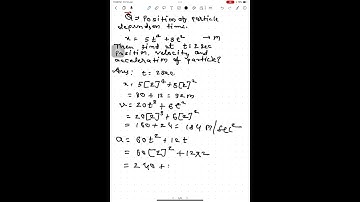 Q: Position of particle
depends on time.
x = 5t⁴ + 3t² → m
Then find at t = 2 sec
position, velocity and
acceleration of particle?
Ans: t = 2 sec
x = 5[2]⁴ + 3[2]²
= 80 + 12 = 92 m
v = 20t³ + 6t²
= 20[2]³ + 6[2]²
= 160 + 24 = 184 m/sec²
a = 60t² + 12t
= 60[2]² + 12×2
= 240 +